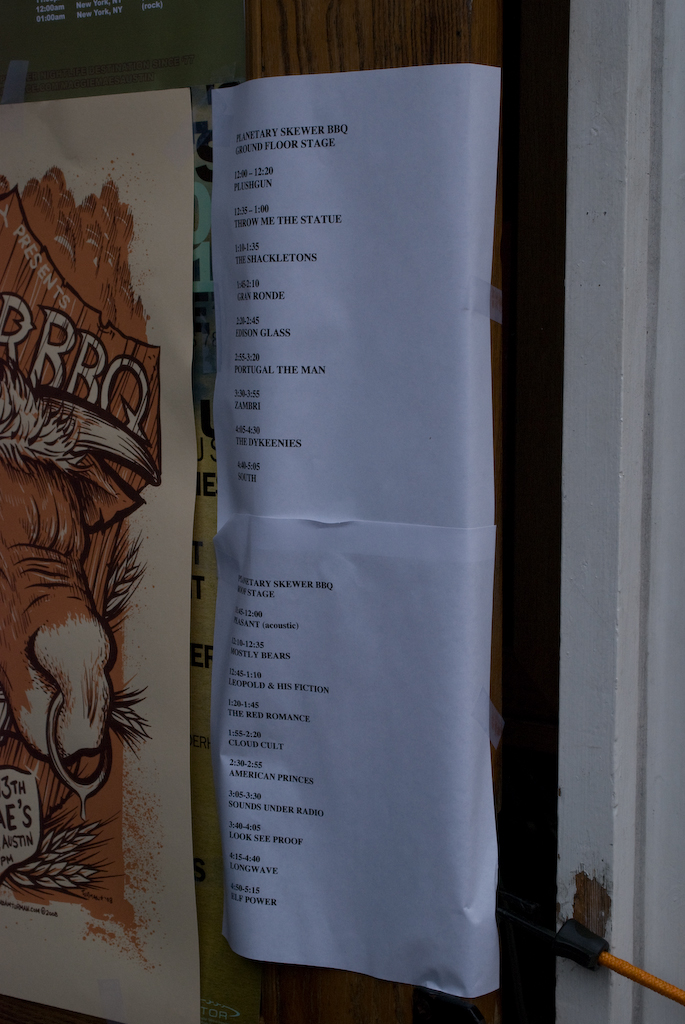 12:00am New York, NY (rock)
01:00am New York, NY
PRESENTS
RBBQ
13TH
AE'S
AUSTIN
PM
PLANETARY SKEWER BBQ
GROUND FLOOR STAGE
12:00 – 12:20
PLUSHGUN
12:35 – 1:00
THROW ME THE STATUE
1:10-1:35
THE SHACKLETONS
1:45-2:10
GRAN RONDE
2:20-2:45
EDISON GLASS
2:55-3:20
PORTUGAL THE MAN
3:30-3:55
ZAMBRI
4:05-4:30
THE DYKEENIES
4:40-5:05
SOUTH
PLANETARY SKEWER BBQ
STAGE
45-12:00
(acoustic)
12:10-12:35
MOSTLY BEARS
12:45-1:10
LEOPOLD & HIS FICTION
1:20-1:45
THE RED ROMANCE
1:55-2:20
CLOUD CULT
2:30-2:55
AMERICAN PRINCES
3:05-3:30
SOUNDS UNDER RADIO
3:40-4:05
LOOK SEE PROOF
4:15-4:40
LONGWAVE
4:50-5:15
ELF POWER